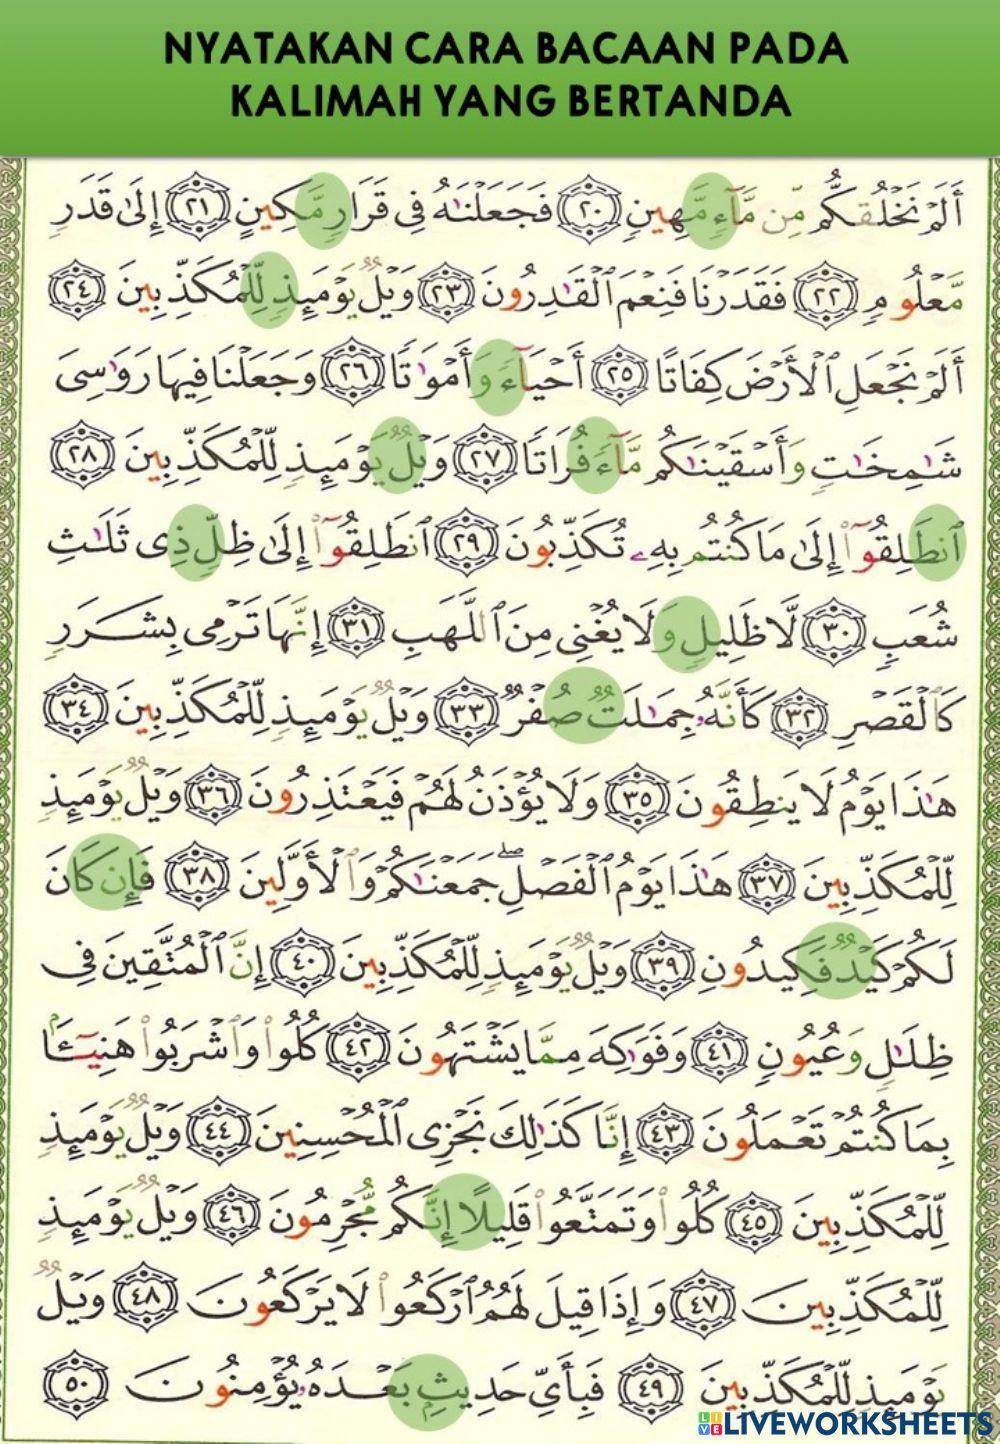 NYATAKAN CARA BACAAN PADA
KALIMAH YANG BERTANDA
أَلَمْ نَخْلُقكُّم مِّن مَّآءٍ مَّهِينٍ ﴿٢٠﴾ فَجَعَلْنَٰهُ فِى قَرَارٍ مَّكِينٍ ﴿٢١﴾ إِلَىٰ قَدَرٍ
مَّعْلُومٍ ﴿٢٢﴾ فَقَدَرْنَا فَنِعْمَ ٱلْقَٰدِرُونَ ﴿٢٣﴾ وَيْلٌ يَوْمَئِذٍ لِّلْمُكَذِّبِينَ ﴿٢٤﴾
أَلَمْ نَجْعَلِ ٱلْأَرْضَ كِفَاتًا ﴿٢٥﴾ أَحْيَآءً وَأَمْوَٰتًا ﴿٢٦﴾ وَجَعَلْنَا فِيهَا رَوَٰسِىَ
شَٰمِخَٰتٍ وَأَسْقَيْنَٰكُم مَّآءً فُرَاتًا ﴿٢٧﴾ وَيْلٌ يَوْمَئِذٍ لِّلْمُكَذِّبِينَ ﴿٢٨﴾
ٱنطَلِقُوٓا۟ إِلَىٰ مَا كُنتُم بِهِۦ تُكَذِّبُونَ ﴿٢٩﴾ ٱنطَلِقُوٓا۟ إِلَىٰ ظِلٍّ ذِى ثَلَٰثِ
شُعَبٍ ﴿٣٠﴾ لَّا ظَلِيلٍ وَلَا يُغْنِى مِنَ ٱللَّهَبِ ﴿٣١﴾ إِنَّهَا تَرْمِى بِشَرَرٍ
كَٱلْقَصْرِ ﴿٣٢﴾ كَأَنَّهُۥ جِمَٰلَتٌ صُفْرٌ ﴿٣٣﴾ وَيْلٌ يَوْمَئِذٍ لِّلْمُكَذِّبِينَ ﴿٣٤﴾
هَٰذَا يَوْمُ لَا يَنطِقُونَ ﴿٣٥﴾ وَلَا يُؤْذَنُ لَهُمْ فَيَعْتَذِرُونَ ﴿٣٦﴾ وَيْلٌ يَوْمَئِذٍ
لِّلْمُكَذِّبِينَ ﴿٣٧﴾ هَٰذَا يَوْمُ ٱلْفَصْلِ ۖ جَمَعْنَٰكُمْ وَٱلْأَوَّلِينَ ﴿٣٨﴾ فَإِن كَانَ
لَكُمْ كَيْدٌ فَكِيدُونِ ﴿٣٩﴾ وَيْلٌ يَوْمَئِذٍ لِّلْمُكَذِّبِينَ ﴿٤٠﴾ إِنَّ ٱلْمُتَّقِينَ فِى
ظِلَٰلٍ وَعُيُونٍ ﴿٤١﴾ وَفَوَٰكِهَ مِمَّا يَشْتَهُونَ ﴿٤٢﴾ كُلُوا۟ وَٱشْرَبُوا۟ هَنِيٓـًٔۢا
بِمَا كُنتُمْ تَعْمَلُونَ ﴿٤٣﴾ إِنَّا كَذَٰلِكَ نَجْزِى ٱلْمُحْسِنِينَ ﴿٤٤﴾ وَيْلٌ يَوْمَئِذٍ
لِّلْمُكَذِّبِينَ ﴿٤٥﴾ كُلُوا۟ وَتَمَتَّعُوا۟ قَلِيلًا إِنَّكُم مُّجْرِمُونَ ﴿٤٦﴾ وَيْلٌ يَوْمَئِذٍ
لِّلْمُكَذِّبِينَ ﴿٤٧﴾ وَإِذَا قِيلَ لَهُمُ ٱرْكَعُوا۟ لَا يَرْكَعُونَ ﴿٤٨﴾ وَيْلٌ
يَوْمَئِذٍ لِّلْمُكَذِّبِينَ ﴿٤٩﴾ فَبِأَىِّ حَدِيثٍۭ بَعْدَهُۥ يُؤْمِنُونَ ﴿٥٠﴾
LIVEWORKSHEETS